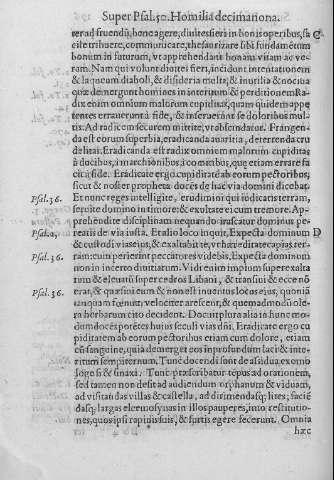 Super Psal. 50. Homilia decimanona.
ter ad fruendū, bonc agere, diuites fieri in bonis operibus, fa C
cile tribuere, communicare, thesaurizare sibi fundamētum
bonum in futurum, vt apprehendant bonam vitam ac ve-
ram. Nam qui volunt diuites fieri, incidunt intentationem
& laqueum diaboli, & desideria multa, & inutilia & nociua
quæ demergunt homines in interitum & perditionem Ra-
dix enim omnium malorum cupiditas, quam quidem appe
tentes errauerunt à fide, & inseruerunt se doloribus mul-
tis. Ad radicem securem mittite, vt abscindatur. Frangen-
da est eorum superbia, eradicanda auaritia, deterrenda cru
delitas. Eradicanda est radix omnium malorum cupiditas
à ducibus, à marchionibus à comitibus, quę etiam errare fa
cit à fide. Eradicate ergo cupiditatē ab eorum pectoribus,
sicut & noster propheta docēs de hac via domini dicebat.
Psal. 36. Et nunc reges intelligite, erudimini qui iudicatis terram,
seruite domino in timore: & exultate ei cum tremore. Ap-
prehendite disciplinam nequando irascatur dominus pe-
Psal. 2, reatis de via iusta. Et alio loco inquit, Expecta dominum D
& custodi vias eius, & exaltabit te, vt hæreditate capias ter-
Psal. 36. ram: cum perierint peccatores videbis, Expecta dominum
non in incerto diuitiarum. Vidi enim impium super exalta
tum & eleuatū super cedros Libani, & transiui & ecce nō
Psal. 36. erat, & quæsiui eum & non est inuentus locus eius, quoniā
tanquam fœnum velociter arescent, & quemadmodū ole-
ra herbarum cito decident. Docuit plura alia in hunc mo-
dum docēs potētes huius seculi vias dn̄i. Eradicate ergo cu
piditatem ab eorum pectoribus etiam cum dolore, etiam
cū sanguine, quia demergit eos in profundum laci & inte-
ritum sempiternum. Tunc docendi sunt de assidua exomo
logesi & sinaxi. Tunc præscribatur tēpus ad orationem,
sed tamen non desit ad audiendum orphanum & viduam,
ad visitandas villas & castella, ad dirimendasq; lites; facien
dasq; largas eleemosynas in illos pauperes, imo restitutio-
nes, quos ipsi rapinis suis, & furtis egere fecerunt. Omnia
hæc